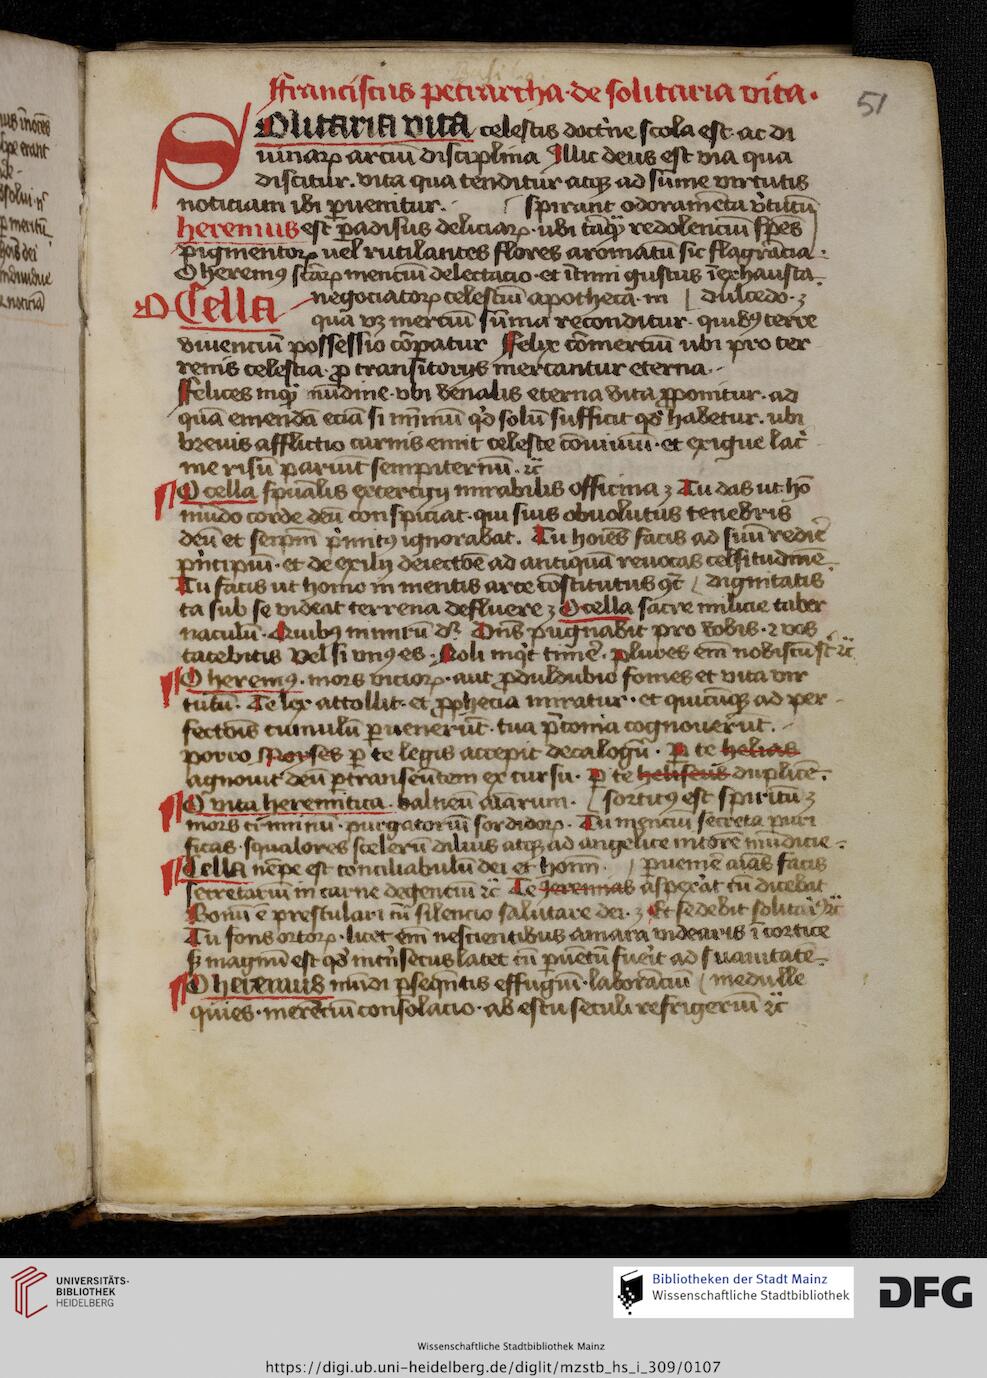 ffranciscus petrarcha · de solitaria vita ·
51
SOlitaria vita celestis doct'ne scola est · ac di
uinaꝝ arciū disciplina Illic deus est via qua
discitur · vita qua tenditur atqꝫ ad sūme virtutis
noticiam ibi ꝑuenitur · spirant odorameta v'tutū
heremus est ꝑadisus deliciaꝝ · ubi tāqͣꝫ redolenciū spēs
pigmentoꝝ vel rutilantes flores aromatū sic flagrācia ·
O heremꝰ scāꝝ menciū delectacio · et ītimi gustus īexhausta
O Cella negociatoꝝ celestiū apotheca · in dulcedo · ꝫ
qua vꝫ merciū sūma reconditur · quibꝰ terre
viuenciū possessio cōparatur ffelix cōmerciū ubi pro ter
renis celestia · ꝓ transitorijs mercantur eterna ·
ffelices inqͣꝫ nūdine · vbi venalis eterna vita ꝓponitur · ad
quā emendā eciā si mīmū qd' solū sufficit qd' habetur · ubi
breuis afflictio carnis emit celeste cōuiuiū · et exigue lac'
me risū pariunt sempiternū · ꝛc̄
¶ O cella spūalis exercicij mirabilis officina ꝫ Tu das ut hō
mūdo corde deū conspiciat · qui suis obuolutus tenebris
deū et seipm̄ p'nitꝰ ignorabat · Tu hoīes facis ad suū redir'
p'ncipiū · et de exilij deiectōe ad antiquā reuocas celsitudinē
Tu facis ut homo in mentis arce cōstitutus ꝯc̄ dignitatis
ta sub se videat terrena defluere ꝫ O cella sacre milicie taber
naculū · Quibꝰ mirū d'r Dn̄s pugnabit pro vobis · ⁊ vos
tacebitis Vel si vnꝰ es · Noli inq't timē' · plures em̄ nobiscū st̄ ꝛc̄
¶ O heremꝰ · mors vicioꝝ · aut ꝓculdubio fomes et vita vir
tutū · Te lex attollit · et ꝓphecia miratur · et quicūqꝫ ad per
fectōis cumulū ꝑuenerūt · tua p̄conia cognouerūt ·
porro Moyses ꝑ te legis accepit decalogū · Ꝑ te helias
agnouit deū ꝑtranseūtem ex cursu · Ꝑ te heliseus duplicē ·
¶ O vita heremitica · balneū aīarum · sortitꝰ est spiritū ꝫ
mors criminū · purgatoriū sordidoꝝ · Tu menciū secreta puri
ficas · squalores scelerū diluis atqꝫ ad angelice nitorē mūdicie ·
¶ Cella nēpe est conciliabulū dei et homī · ꝑuenīre aīas facis
secretariū in carne degenciū ꝛc̄ Te Jeremias asperat cū dicebat
Bonū ē prestolari cū silencio salutare dei · ꝫ Et sedebit solitari' ꝛc̄
Tu fons ortoꝝ · licet em̄ nescientibus amara videaris ī cortice
sꝫ magnū est qd' int'nsecus latet cū ꝑuētū fuerit ad suauitatē
¶ O heremus mūdi ꝑseqn̄tis effugiū · laboranciū medulle
quies · merēciū consolacio · ab estu seculi refrigeriū ꝛc̄
UNIVERSITÄTS-
BIBLIOTHEK
HEIDELBERG
Bibliotheken der Stadt Mainz
Wissenschaftliche Stadtbibliothek
DFG
Wissenschaftliche Stadtbibliothek Mainz
https://digi.ub.uni-heidelberg.de/diglit/mzstb_hs_i_309/0107